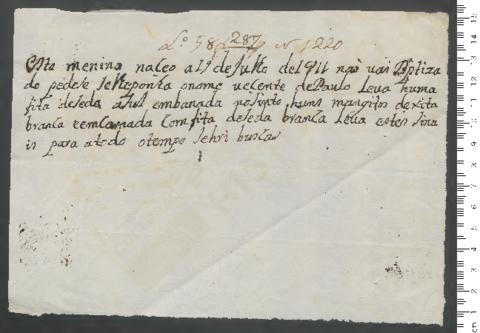 Lo 58 287 N 1220
Este menino naceo a 15 de Julho de 1911 não vai Baptiza
do pedese se lhe ponha o nome vecente de Paulo Leva huma
fita de seda azul embanada no sinto, huns manguitos de xita
branca e emcarnada Com fita de seda branca Leva estes sina
is para a todo o tempo se hir buscar